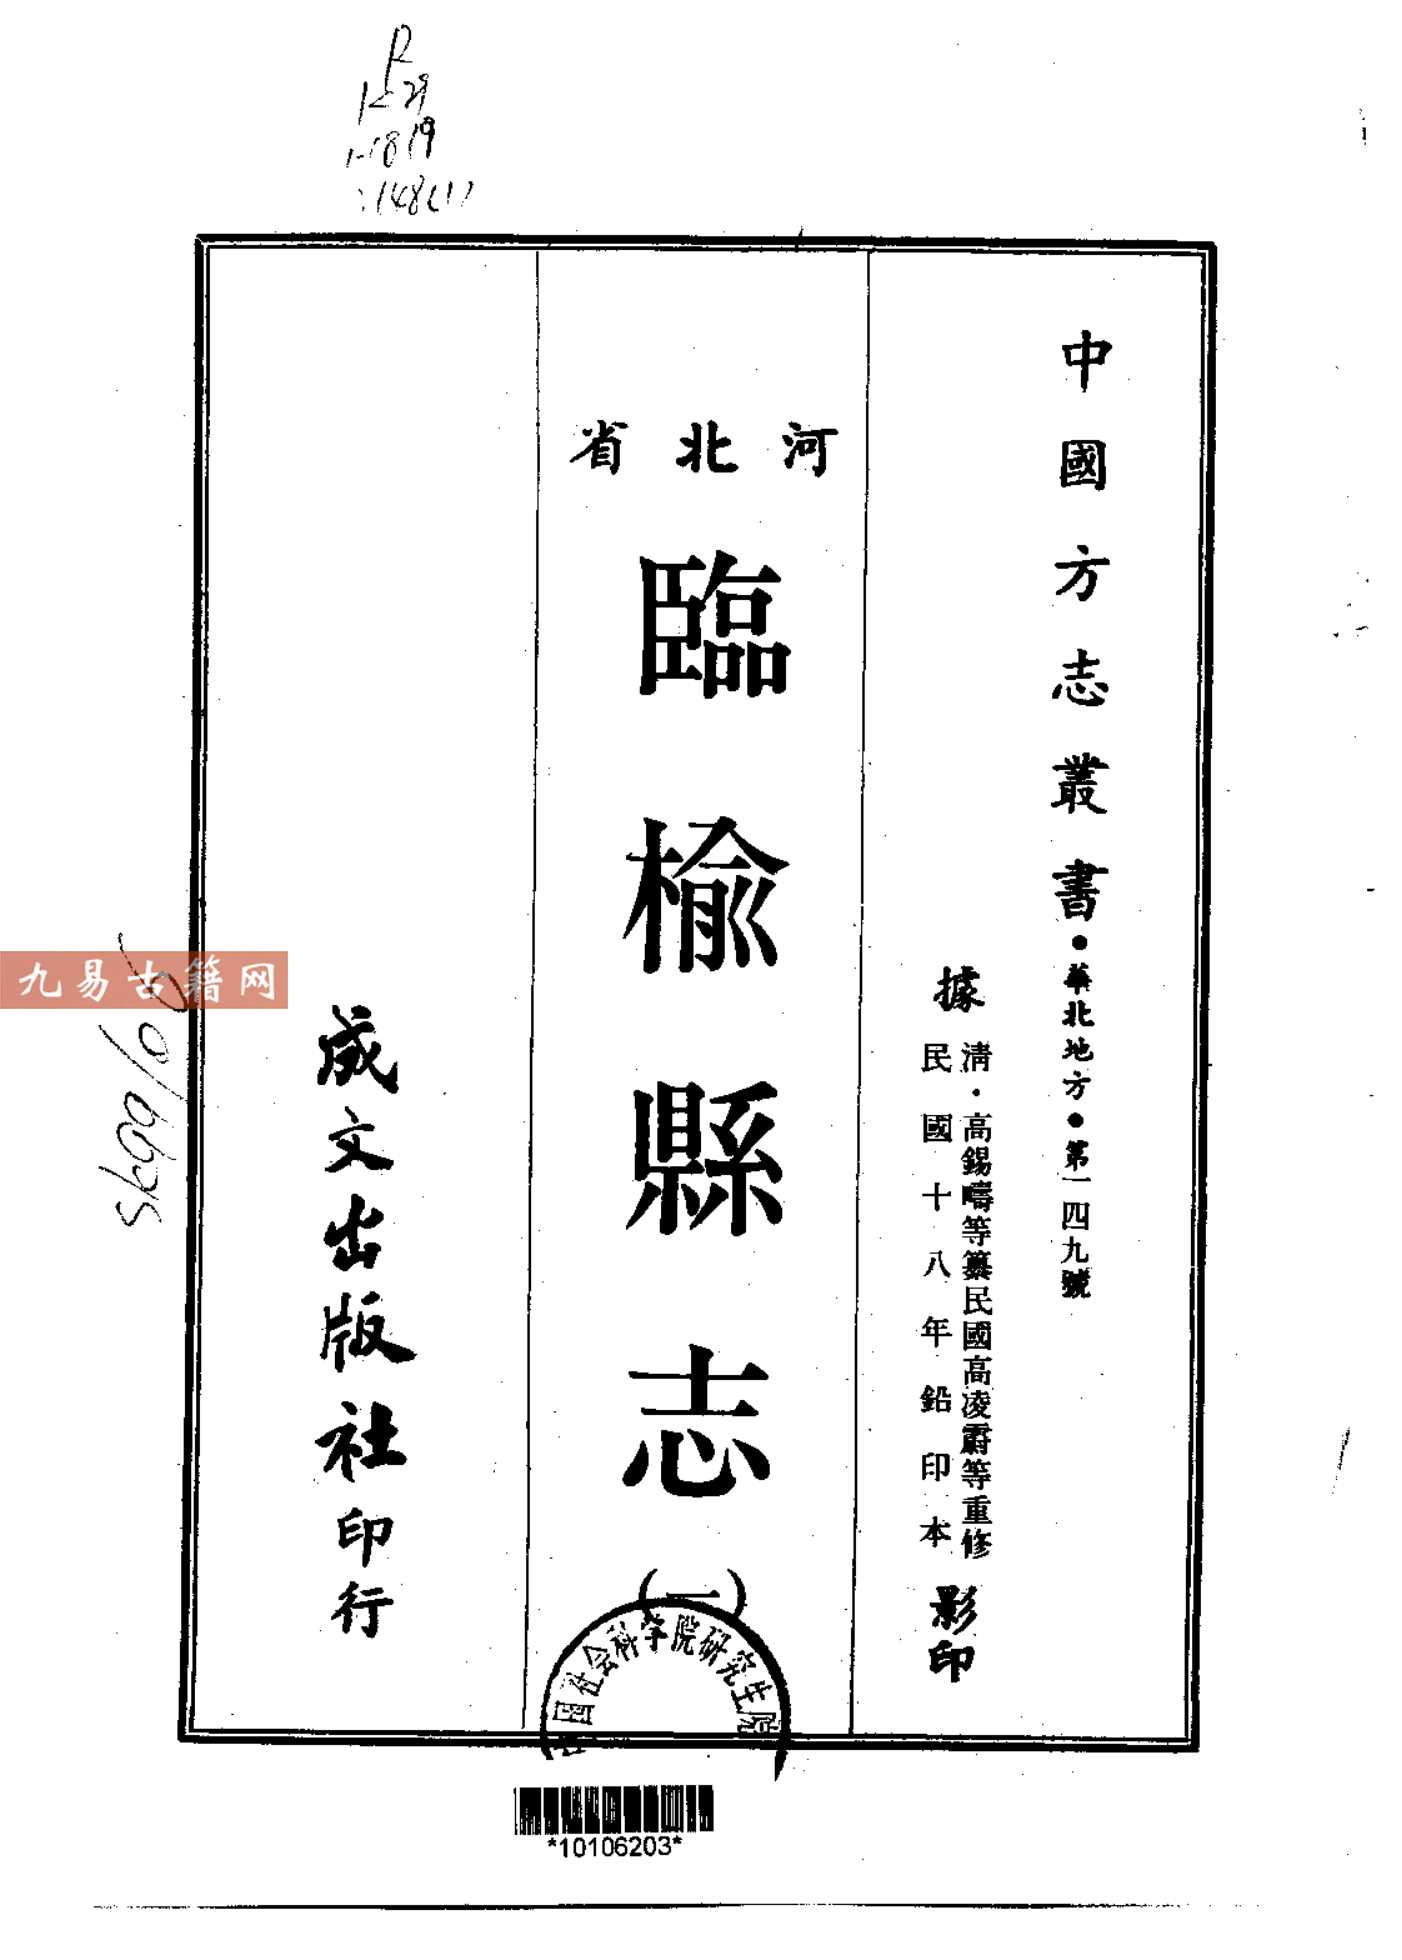 R
K29
1-1819
:148(1)
中國方志叢書●華北地方●第一四九號
據
清·高錫疇等纂民國高凌霨等重修
民國十八年鉛印本
影印
河北省
臨榆縣志
(一)
成文出版社印行
中国社会科学院研究生院
九易古籍网
*10106203*